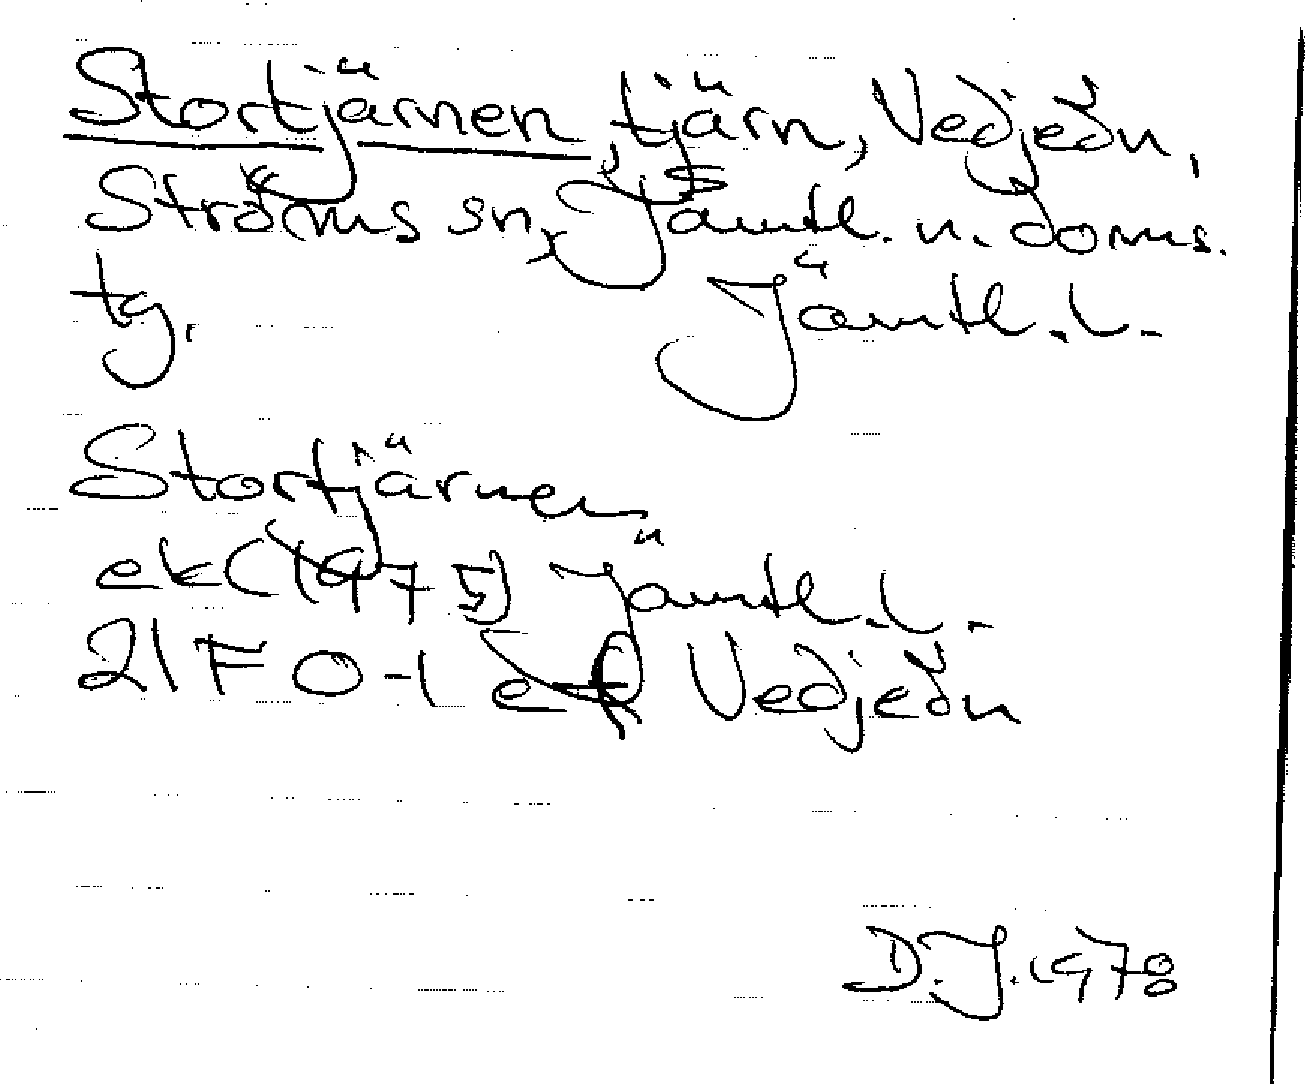 Stortjärnen, tjärn, Vedjeön,
Ströms sn, Jämtl. n. doms.
tg. Jämtl. l.
Stortjärnen
ek (1975) Jämtl. l.
21F 0-1 ef Vedjeön
D. J. 1978